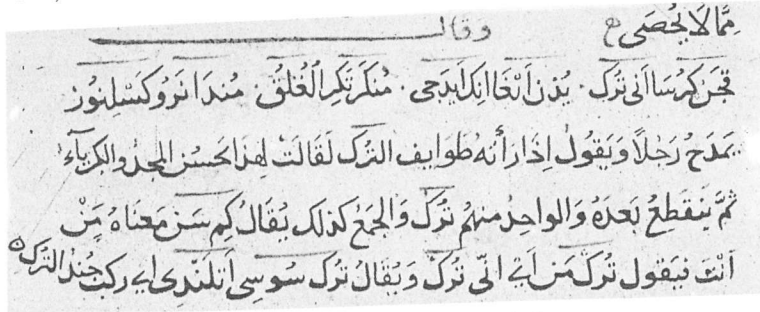 مِمَّا لَا يُحْصَى وقال
قجَن كرُسَا اَنى تُرك . بُذن اَنغَا انكَ ايدَجى . مُنكَر تكِر الُغلُق . مُندَا نَرُو كسْلِنُور
يَمدَحُ رَجُلاً وَيَقُولُ اِذَا رَأَتهُ طَوايف التُرك لقَالت لِهذا يَحسُن المجدُ والكبرياَء
ثمَّ يَنقَطعُ بَعدَهُ وَالواحِدُ منهمُ تُرك وَالجَمعُ كذلك يُقَالُ كِم سَن مَعنَاهُ مَنْ
اَنتَ فيَقول تُرك مَن اَىْ انّى تُركٌ وَيُقَالُ تُرك سُوسِى اَتلَندِى اى رَكبَ جُندُ التُرك